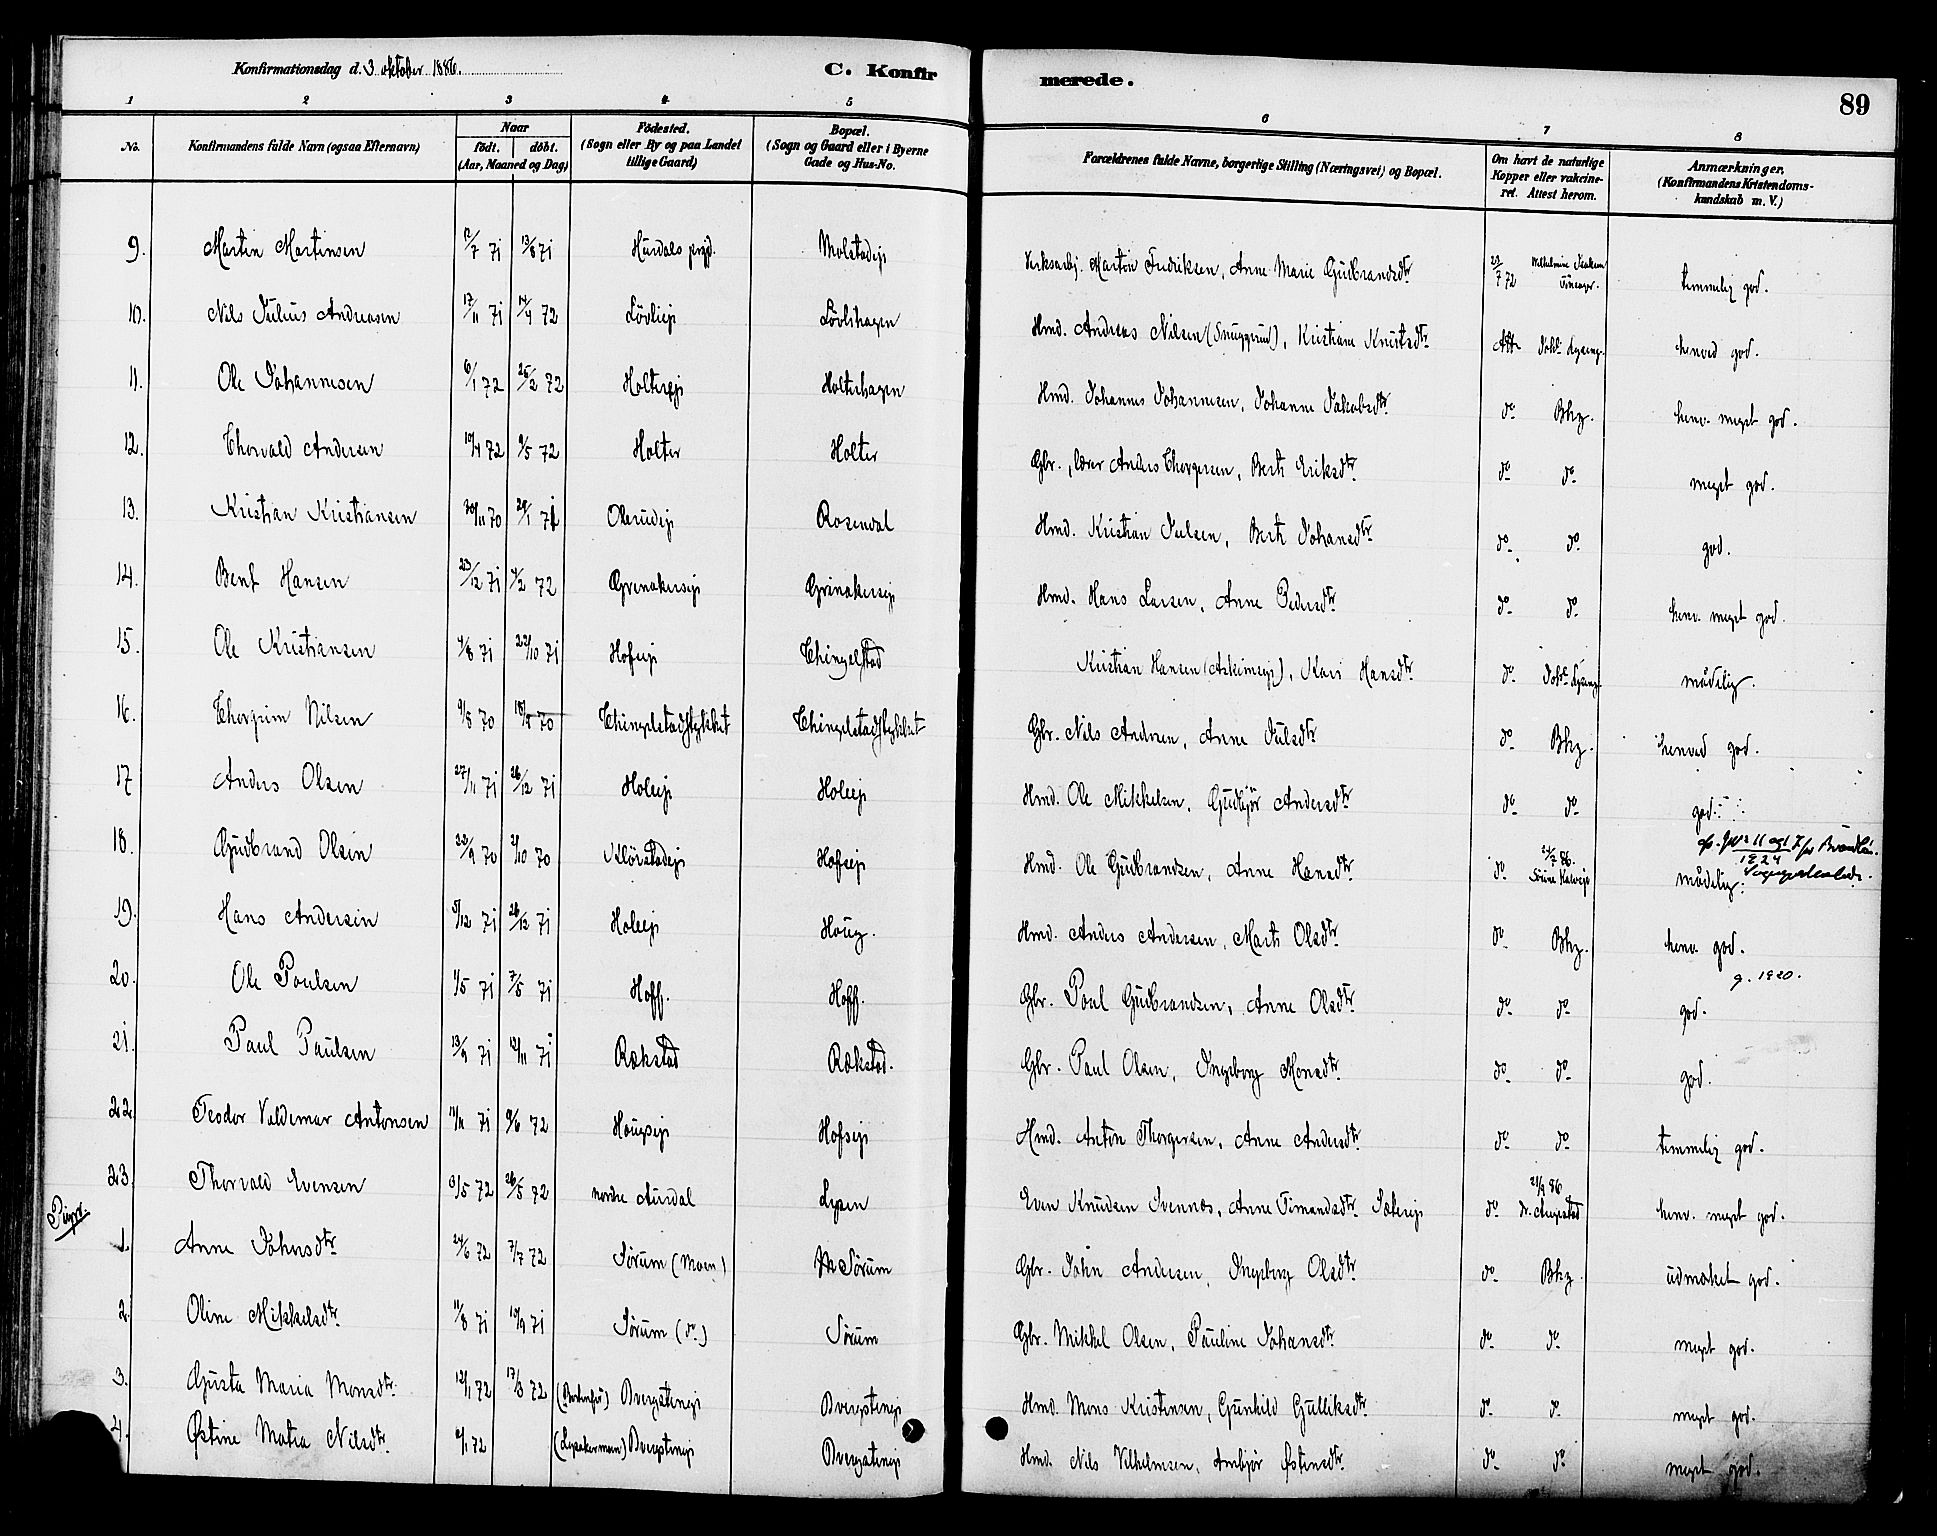 Konfirmationsdag d. 3 oktober 1886.
C. Konfirmerede.
89
1 2 3 4 5 6 7 8
No. Konfirmandens fulde Navn (ogsaa Efternavn) Naar födt. döbt. (Aar, Maaned og Dag) Födested. (Sogn eller By og paa Landet tillige Gaard) Bopæl. (Sogn og Gaard eller i Byerne Gade og Hus-No. Forældrenes fulde Navne, borgerlige Stilling (Næringsvei) og Bopæl. Om havt de naturlige Kopper eller vakcineret. Attest herom. Anmærkninger. (Konfirmandens Kristendomskundskab m. V.)
9. Martin Martinsen 12/7 71 13/8 71 Hurdals prgjd. Molstadejp Verksarbj. Martin Fredriksen, Anne Marie Gudbrandsdtr 72 temmelig god.
10. Nils Julius Andreasen 17/11 71 14/4 72 Lövliejp Lövlihagen Hmd. Andreas Nilsen (Snuggerud), Kristiane Knutsdtr Att henved god.
11. Ole Johannesen 6/1 72 25/2 72 Holterejp Holterhagen Hmd. Johannes Johannesen, Johanne Jakobsdtr do Bhg. henv. meget god.
12. Thorvald Andersen 10/4 72 9/5 72 Holter Holter Gbr., lærer Anders Thorgersen, Berth Eriksdtr do do meget god.
13. Kristian Kristiansen 30/11 70 29/1 71 Olerudejp Rosendal Hmd. Kristian Julsen, Berth Johansdtr do do god.
14. Bent Hansen 23/12 71 4/2 72 Grinakersejp Grinakersejp Hmd. Hans Larsen, Anne Pedersdtr do do henv. meget god.
15. Ole Kristiansen 4/8 71 22/10 71 Hofsejp Thingelstad Kristian Hansen (Askimsejp), Kari Hansdtr do mådelig.
16. Thorgrim Nilsen 9/8 70 70 Thingelstadstykket Thingelstadstykket Gbr. Nils Andrsen, Anne Julsdtr do Bhg. henved god.
17 Anders Olsen 27/11 71 26/12 71 Holeejp Holeejp Hmd. Ole Mikkelsen, Gudbjör Andersdtr do do god.
18. Gudbrand Olsen 22/9 70 2/10 70 Klørstadejp Hofsejp Hmd. Ole Gudbrandsen, Anne Hansdtr do 86. mådelig.
1924
19. Hans Andersen 5/12 71 26/12 71 Holeejp Houg. Hmd. Anders Andersen, Marth Olsdtr do Bhg. henv. god.
20. Ole Poulsen 1/5 71 7/5 71 Hoff. Hoff. Gbr. Poul Gudbrandsen, Anne Olsdtr do do god.
g. 1920.
21. Paul Paulsen 13/9 71 12/11 71 Rækstad Rækstad. Gbr. Paul Olsen, Ingeborg Monsdtr do do god.
22. Teodor Valdemar Antonsen 11/11 71 9/6 72 Hougsejp Hofsejp Hmd. Anton Thorgersen, Anne Andersdtr do do temmelig god.
23. Thorvald Evensen 3/5 72 26/5 72 nordre Aurdal Lysen Even Knudsen Svennes, Anne Timandsdtr Sæterejp do 21/9 86 henv. meget god.
Piger.
1. Anne Johnsdtr 24/6 72 7/7 72 Sørum (Moen) Sørum Gbr. John Andersen, Ingeborg Olsdtr do Bhg. udmærket god.
2. Oline Mikkelsdtr 11/8 71 10/9 71 Sørum (do) Sørum Gbr. Mikkel Olsen, Pauline Johansdtr do do meget god.
3. Gusta Maria Monsdtr 12/1 72 17/3 72 Dvergstenejp Dvergstenejp Hmd. Mons Kristensen, Gunhild Gulliksdtr do do meget god.
4. Østine Matea Nilsdtr 72 (Lysakermoen) Dvergstenejp Dvergstenejp Hmd. Nils Vilhelmsen, Ambjör Østensdtr do do meget god.